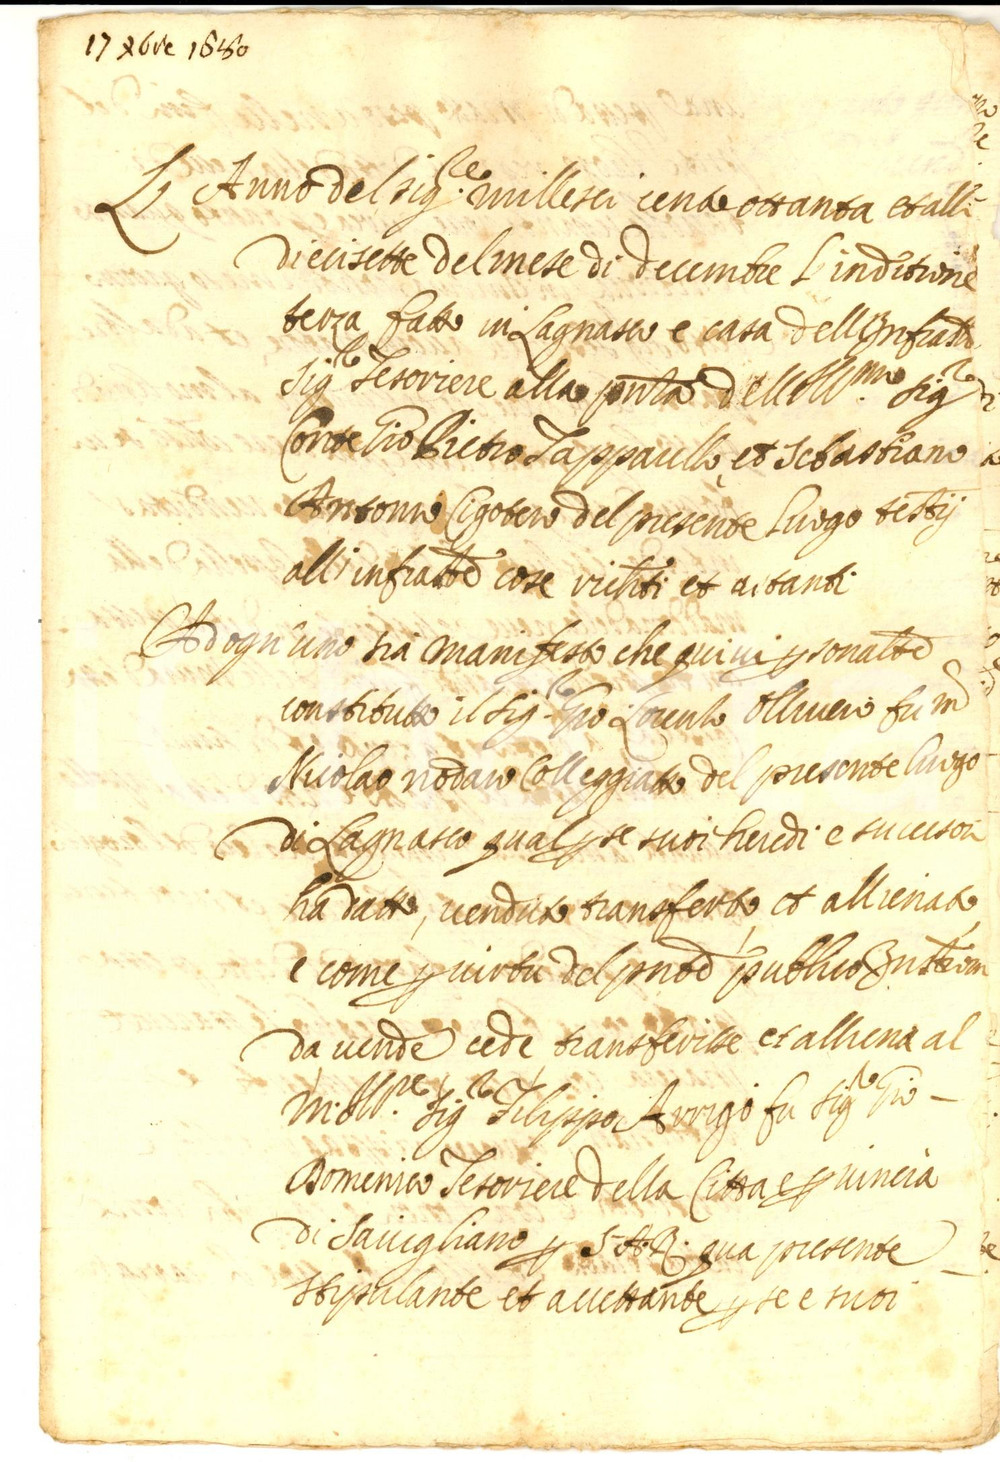 17 Xbre 1680
L Anno del sig.re millesei cento ottanta et alli
diecisette del mese di decembre l'inditione
terza fatto in Lagnasco e casa dell Infratto
sig.r Tesoriere alla pnta dell Ill.mo sig.r
Conte Gio Pietro Tappaulle, et Sebastiano
Antonio del presente luogo testij
all infratte cose richti et astanti
Ad ogn'uno sia manifesto che quivi psonalte
constituto il sig.r Gio Lorenzo Olliveri fu m
Nicolao nodaro Colleggiato del presente luogo
di Lagnasco qual p se suoi heredi e sucessori
ha datto, venduto transferto, et allienato,
e come p virtu del pnte publico Instrom
da vende cede transferisse et alliena al
m. Ill.re sig.r Filippo Arrigo fu sig.r Gio -
Domenico Tesoriere della Citta e pvincia
di Savigliano p S.A.R. qua presente
stipulante et accettante p se e suoi